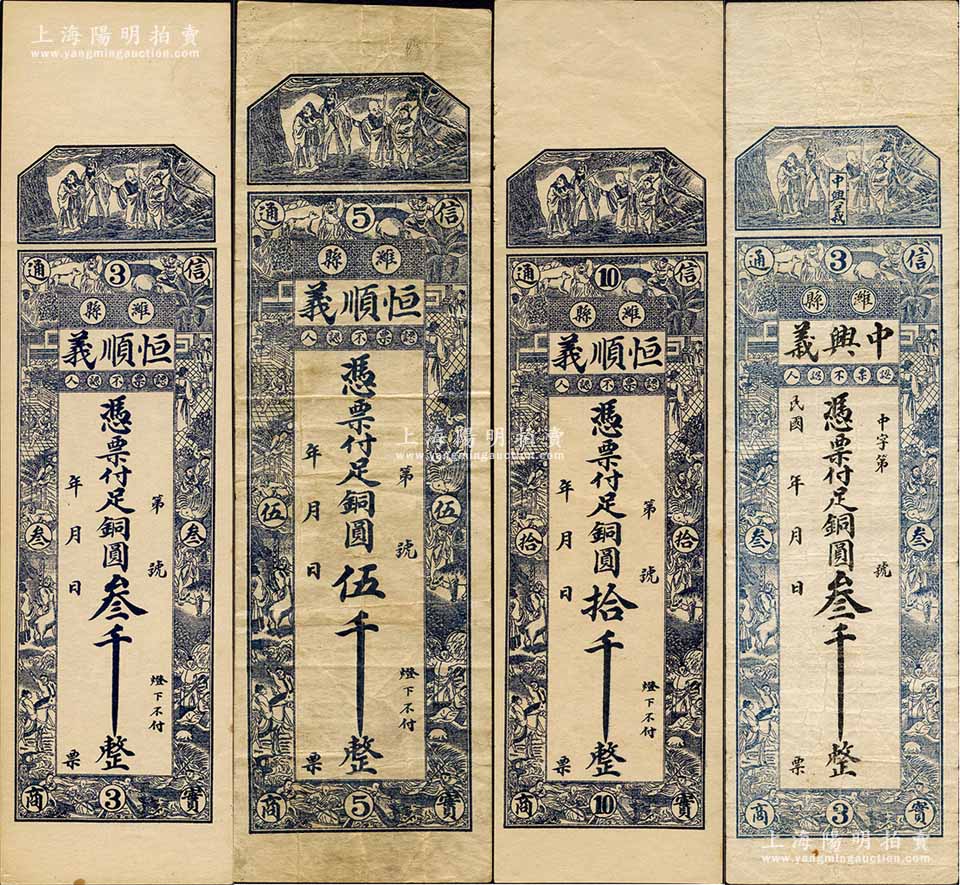 上海陽明拍賣
www.yangmingauction.com
信 3 通
濰縣
恒順義
認票不認人
憑票付足銅圓叁千整
第 號
年 月 日
燈下不付
票
叁 叁
實 3 商
信 5 通
濰縣
恒順義
認票不認人
憑票付足銅圓伍千整
第 號
年 月 日
燈下不付
票
伍 伍
實 5 商
信 10 通
濰縣
恒順義
認票不認人
憑票付足銅圓拾千整
第 號
年 月 日
燈下不付
票
拾 拾
實 10 商
中興義
信 3 通
濰縣
中興義
認票不認人
中字第 號
憑票付足銅圓叁千整
民國 年 月 日
票
叁 叁
實 3 商
上海陽明拍賣
www.yangmingauction.com
上海陽明拍賣
www.yangmingauction.com